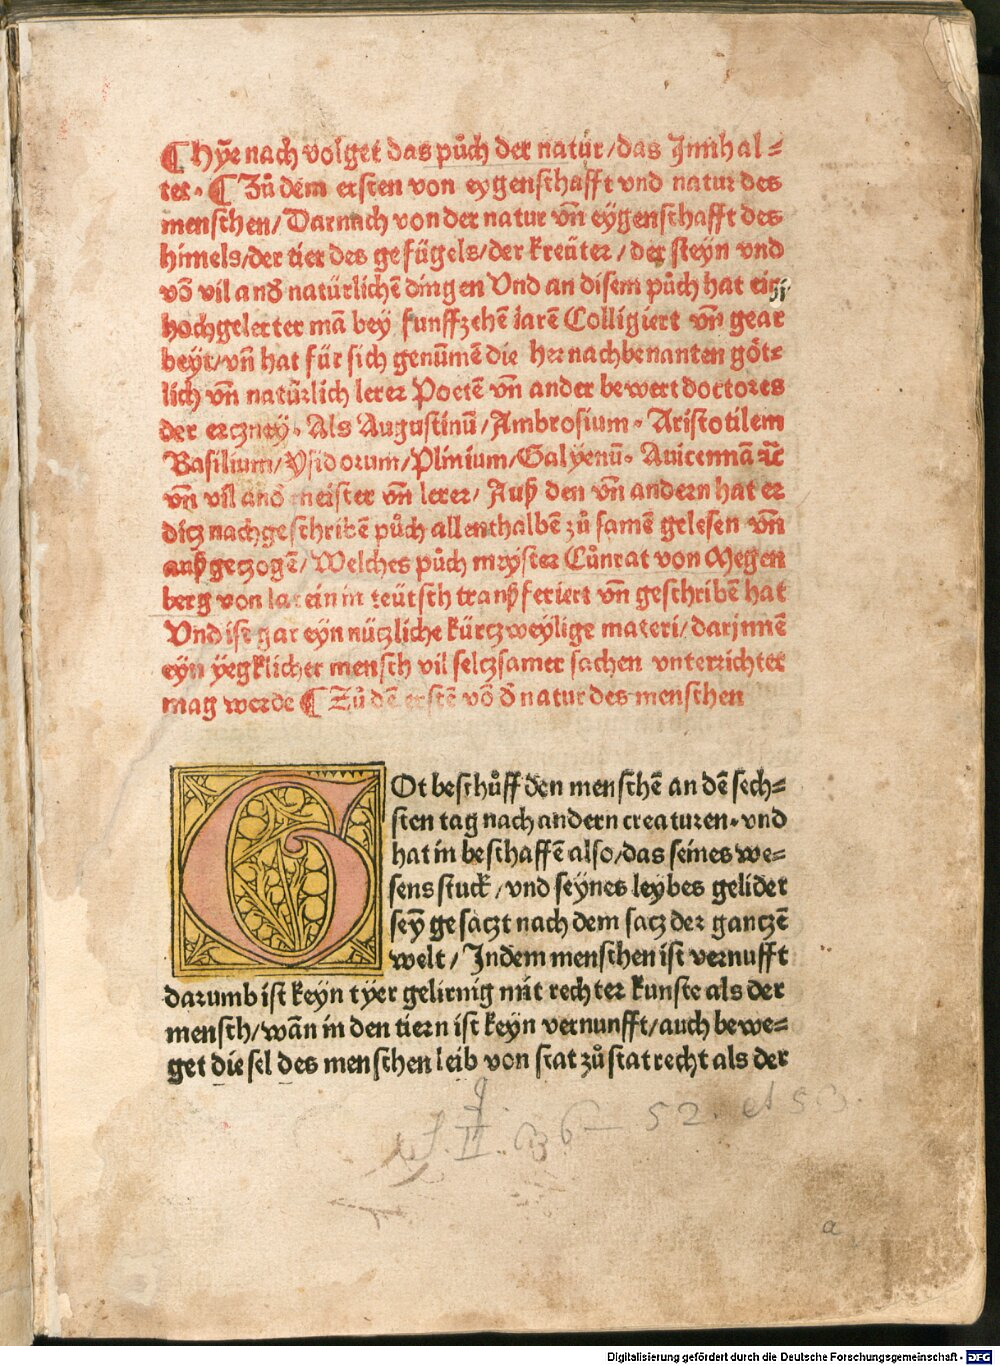 ¶ Hÿe nach volget das půch der natur/das Innhal⸗
tet. ¶ Zů dem ersten von eygenschafft vnd natur des
menschen/Darnach von der natur vn̄ eÿgenschafft des
himels/der tier des gefügels/der kreüter/der steyn vnd
vō vil and natürlichē dingen Vnd an disem půch hat ein
hochgelerter mā bey funffzehē iarē Colligiert vn̄ gear
beyt/vn̄ hat für sich genūmē die hernachbenanten göt⸗
lich vn̄ natürlich lerer Poetē vn̄ ander bewert doctores
der erczney. Als Augustinū/Ambrosium. Aristotilem
Basilium/Ysidorum/Plinium/Galyenū. Auicennā ꝛc̄
vn̄ vil and meister vn̄ lerer/Auß den vn̄ andern hat er
ditz nachgeschribē půch allenthalbē zů samē gelesen vn̄
auß geczogē/Welches půch meyster Cůnrat von Megen
berg von latein in teütsch tranßferiert vn̄ geschribē hat
Vnd ist gar eÿn nüczliche kürczweylige materi/darjnnē
eÿn ÿegklicher mensch vil selczsamer sachen vnterrichtet
mag werde ¶ Zů dē erstē vō d̄ natur des menschen
GOt beschůff den menschē an dē sech⸗
sten tag nach andern creaturen. vnd
hat in beschaffē also/das seines we⸗
sens stuck/vnd seÿnes leybes gelider
seÿ gesaczt nach dem sacz der ganczē
welt/Indem menschen ist vernufft
darumb ist keÿn tÿer gelirnig mit rechter kunste als der
mensch/wān in den tiern ist keÿn vernunfft/auch bewe⸗
get die sel des menschen leib von stat zů stat recht als der
36 – 52. et 53.
a
Digitalisierung gefördert durch die Deutsche Forschungsgemeinschaft - DFG